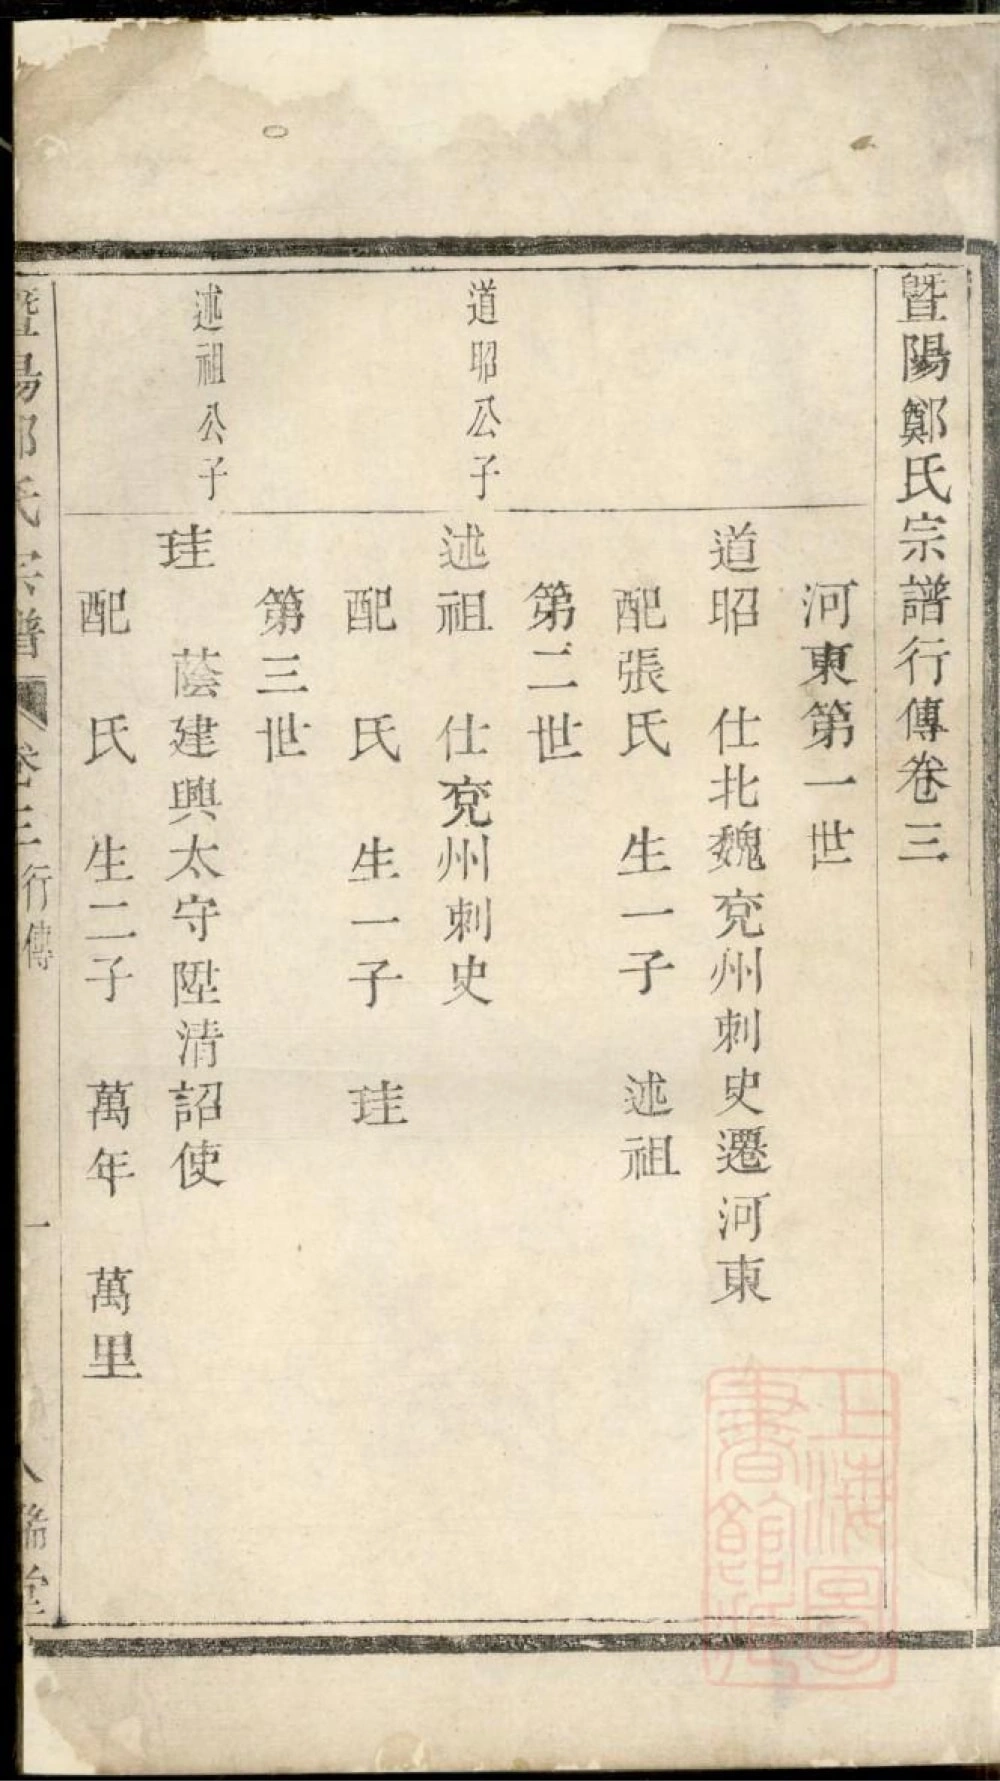 暨陽鄭氏宗譜行傳卷三
河東第一世
道昭　仕北魏兗州刺史遷河東
配張氏　生一子　述祖
第二世
道昭公子
述祖　仕兗州刺史
配　氏　生一子　珪
第三世
述祖公子
珪　蔭建興太守陞清詔使
配　氏　生二子　萬年　萬里
暨陽鄭氏宗譜　卷三行傳　一
上海圖
書館藏